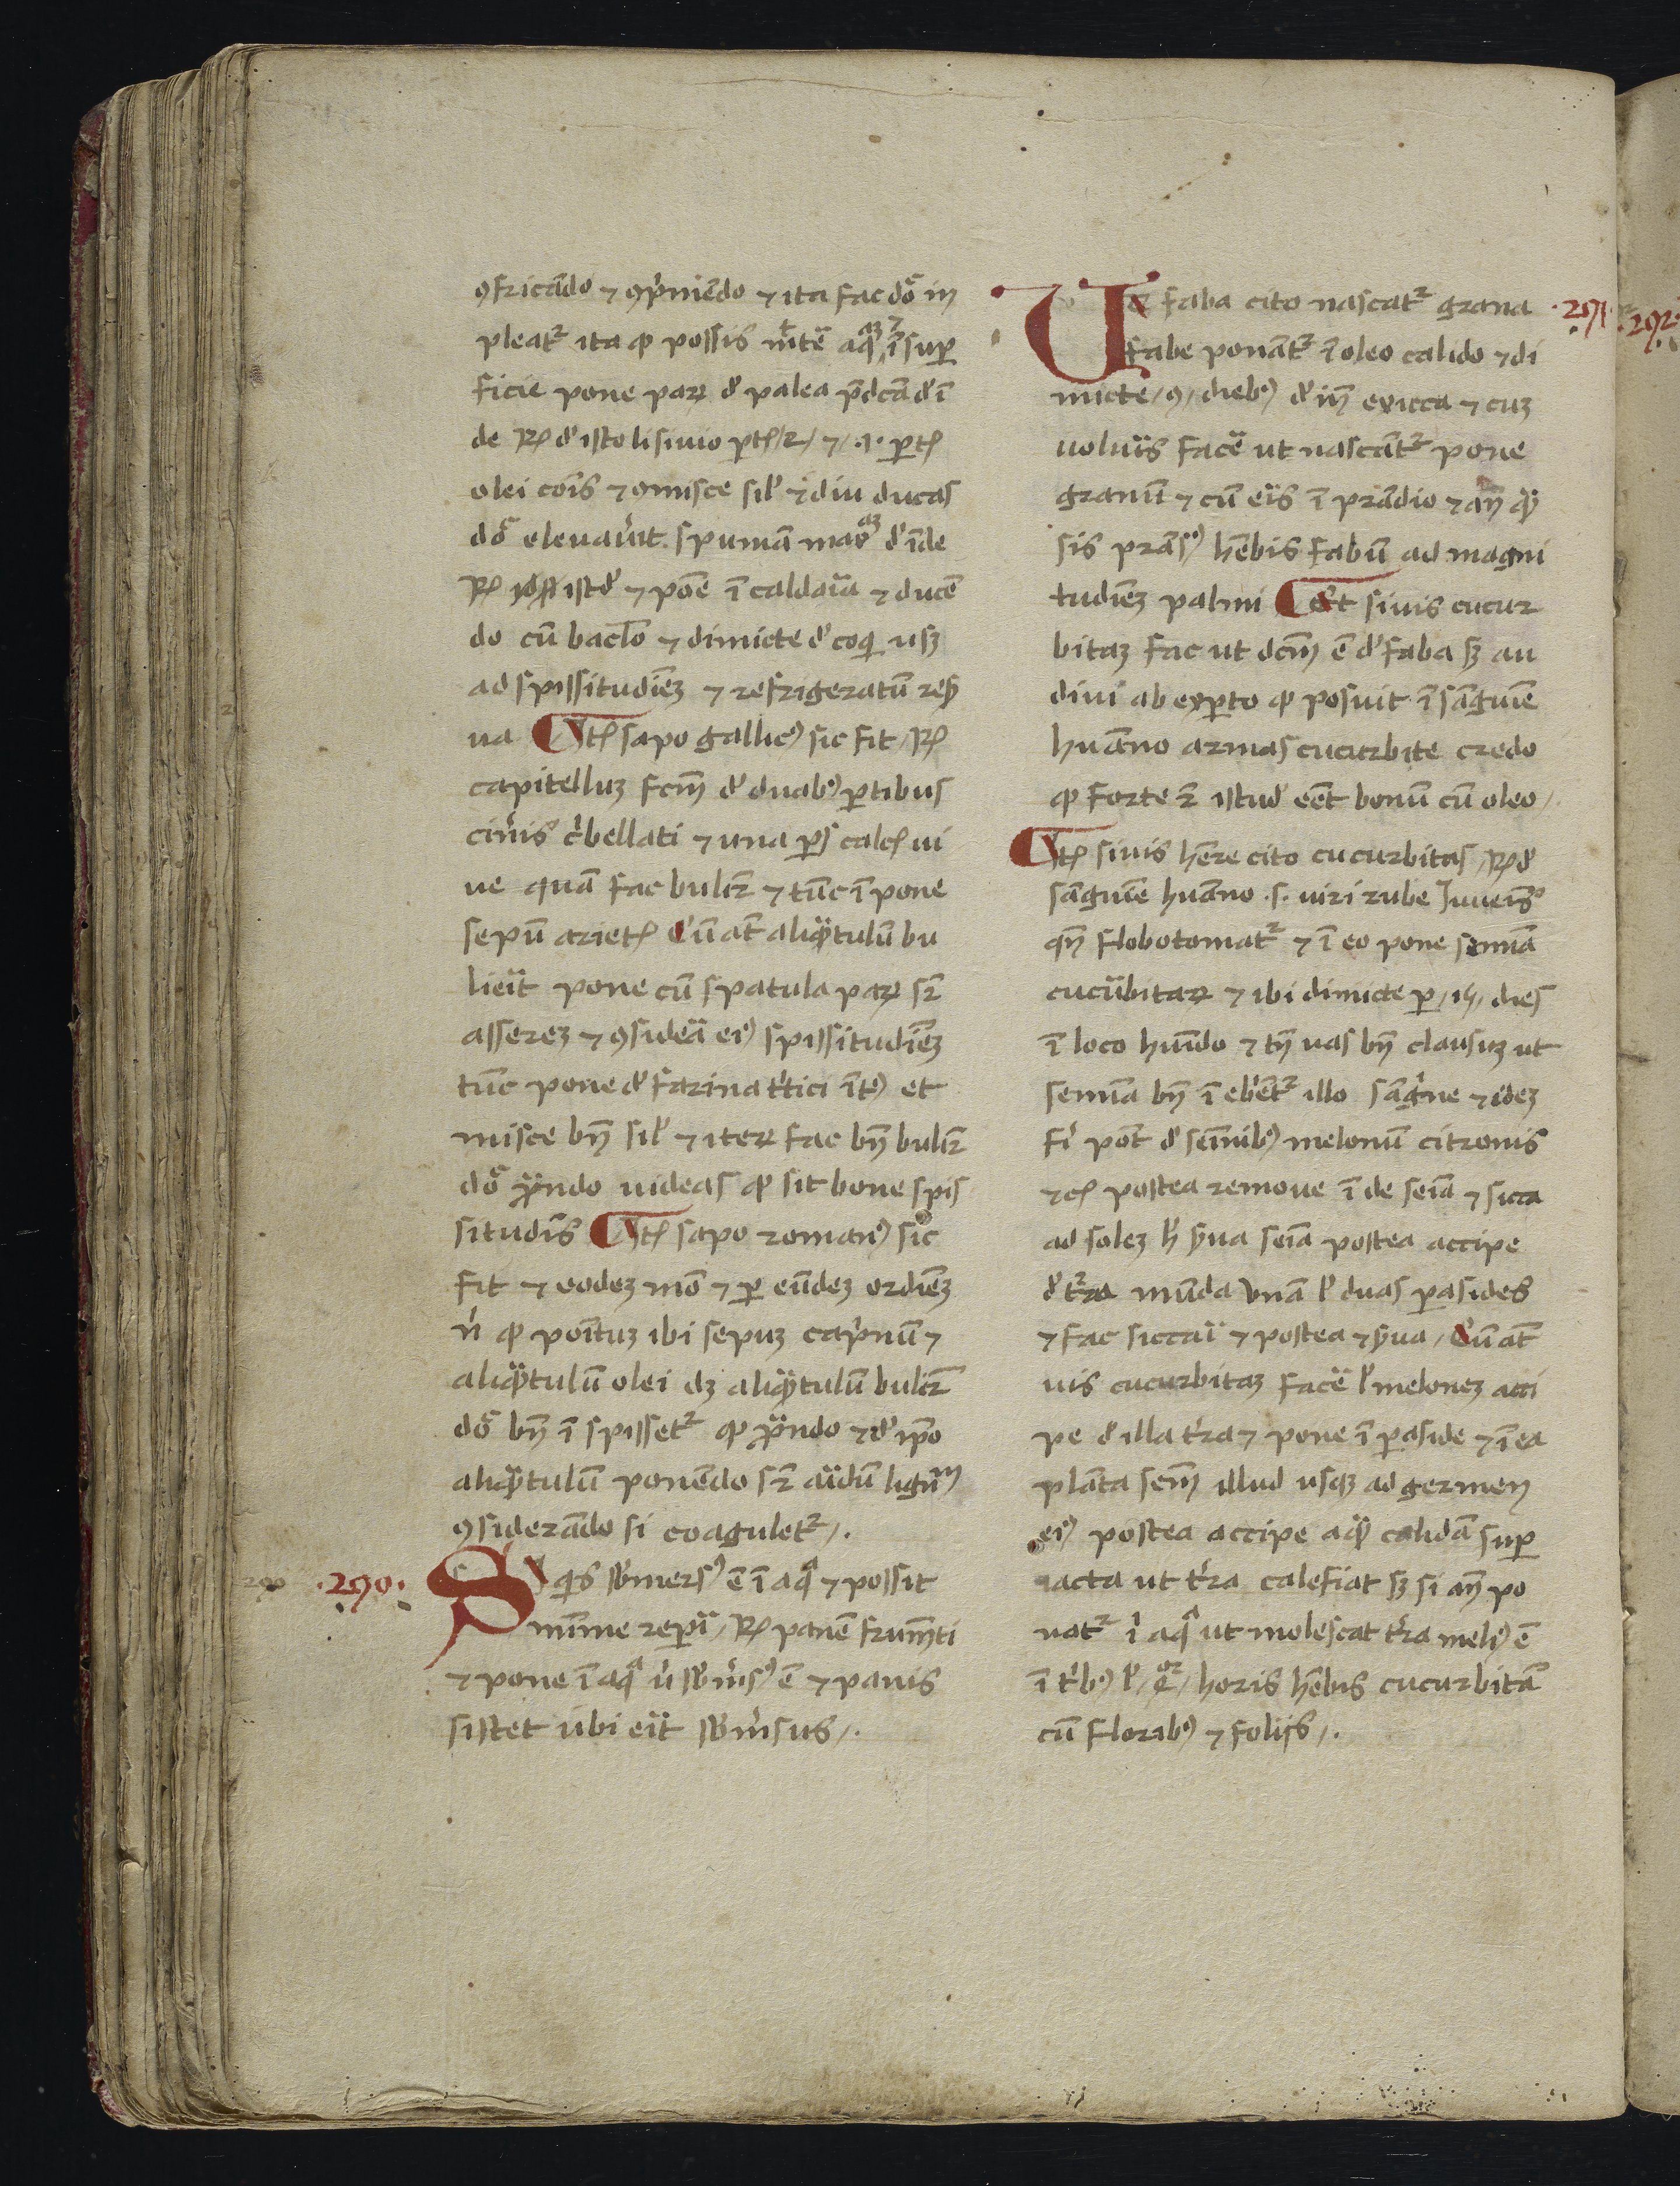 ꝯfricādo ⁊ ꝯp̄mēdo ⁊ ita fac dō im
pleat᷑ ita ꝙ possis mīte᷑ aq̄ꝫ ⁊ ī sup
ficie pone paꝝ d' palea p̄dcā d' ī
de ꝶ d' isto lisiuio ꝑtꝭ /2/ ⁊ /.1. ꝑtꝭ
olei cois̄ ⁊ ꝯmisce sil' ⁊ diu ducas
dō eleuau'it spumā maō d' īde
ꝶ istd' ⁊ pōe ī caldaīa ⁊ ducē
do cū baclō ⁊ dimicte d'coqi usꝫ
ad spissitudīeꝫ ⁊ refrigeratū reẜ
ua ¶ Itꝭ sapo gallicꝰ sic fit / ꝶ
capitelluꝫ fcm̄ d' duabꝰ ꝑtibus
cin'is c'bellati ⁊ una ꝑs calcꝭ ui
ue quā fac bulir̄ ⁊ tūc īpone
sepū arietꝭ Cū at̄ aliqᷓtulū bu
lieīt pone cū spatula paꝝ sr̄
asserez ⁊ ꝯsidēa eiꝰ spissitudīeꝫ
tūc pone d' farina t'tici ītꝰ et
misce bn̄ sil' ⁊ iteꝝ fac bn̄ bulir̄
dō ꝓ̄ndo uideas ꝙ sit bone spis
situdis̄ ¶ Itꝭ sapo romanꝰ sic
fit ⁊ eodeꝫ mō ⁊ ꝑ eūdeꝫ ordīeꝫ
n' ꝙ poīt̄uꝫ ibi sepuꝫ cap'nū ⁊
aliqᷓtulū olei dꝫ aliqᷓtulū bulir̄
dō bn̄ ī spisset᷑ ꝙ ꝓ̄ndo ⁊ d' ip̄o
aliqᷓtulū ponēdo sr̄ aīdū lignᷠ
ꝯsiderādo si coagulet᷑ /.
.290. Si qis sb̄mersꝰ ē ī aqᷓ ⁊ possit
mīme repīri / ꝶ panē frum̄ti
⁊ pone ī aqᷓ u' sb̄m'sꝰ ē ⁊ panis
sistet ubi eīt sb̄m'sus /.
Ut faba cito nascat᷑ grana .291.
fabe ponāt᷑ ī oleo calido ⁊ di
micte / 9 / diebꝰ d' in̄ exicca ⁊ cuꝫ
uoluīs face᷑ ut nascāt᷑ pone
granū ⁊ cū eis̄ ī prādio ⁊ an̄ ꝙ
sis prāsꝰ hēbis fabū ad magni
tudīeꝫ palmi ¶ Et siuis cucur
bitaꝫ fac ut dcm̄ ē d' faba sꝫ au
diui ab exꝑto ꝙ posuit ī sāguīe
huāno armas cucurbite credo
ꝙ forte ⁊ istud eēt bonū cū oleo /
¶ Itꝭ siuis hēre cito cucurbitas / ꝶ d'
sāguīe huāno .s. uiri rube Iuueīsꝰ
qn̄ flobotomat᷑ ⁊ ī eo pone semīa
cucūbitaꝝ ⁊ ibi dimicte ꝑ / 15 / dies
ī loco huīdo ⁊ tn̄ uas bn̄ clausuꝫ ut
semīa bn̄ ī ebēt᷑ illo sāg'ne ⁊ ideꝫ
fi' pōt d' semīibꝰ melonū citronis
⁊cꝭ postea remoue ī de seīa ⁊ sicca
ad soleꝫ h' ẜua seīa postea accipe
d' t'ra mūda vnā l' duas parasides
⁊ fac siccāi ⁊ postea ⁊ ẜua / Cū at̄
uis cucurbitaꝫ face᷑ l' meloneꝫ acci
pe d' illa t'ra ⁊ pone ī paraside ⁊ ī ea
plāta sem̄ illud usqꝫ ad germen
eiꝰ postea accipe aqᷓ calidā sup
iacta ut t'ra calefiat sꝫ si an̄ po
nat᷑ ī aqᷓ ut molescat t'ra meliꝰ ē
ī t'bꝰ l' / 4ᵒʳ / horis hēbis cucurbitā
cū floribꝰ ⁊ foliis /.
.292.